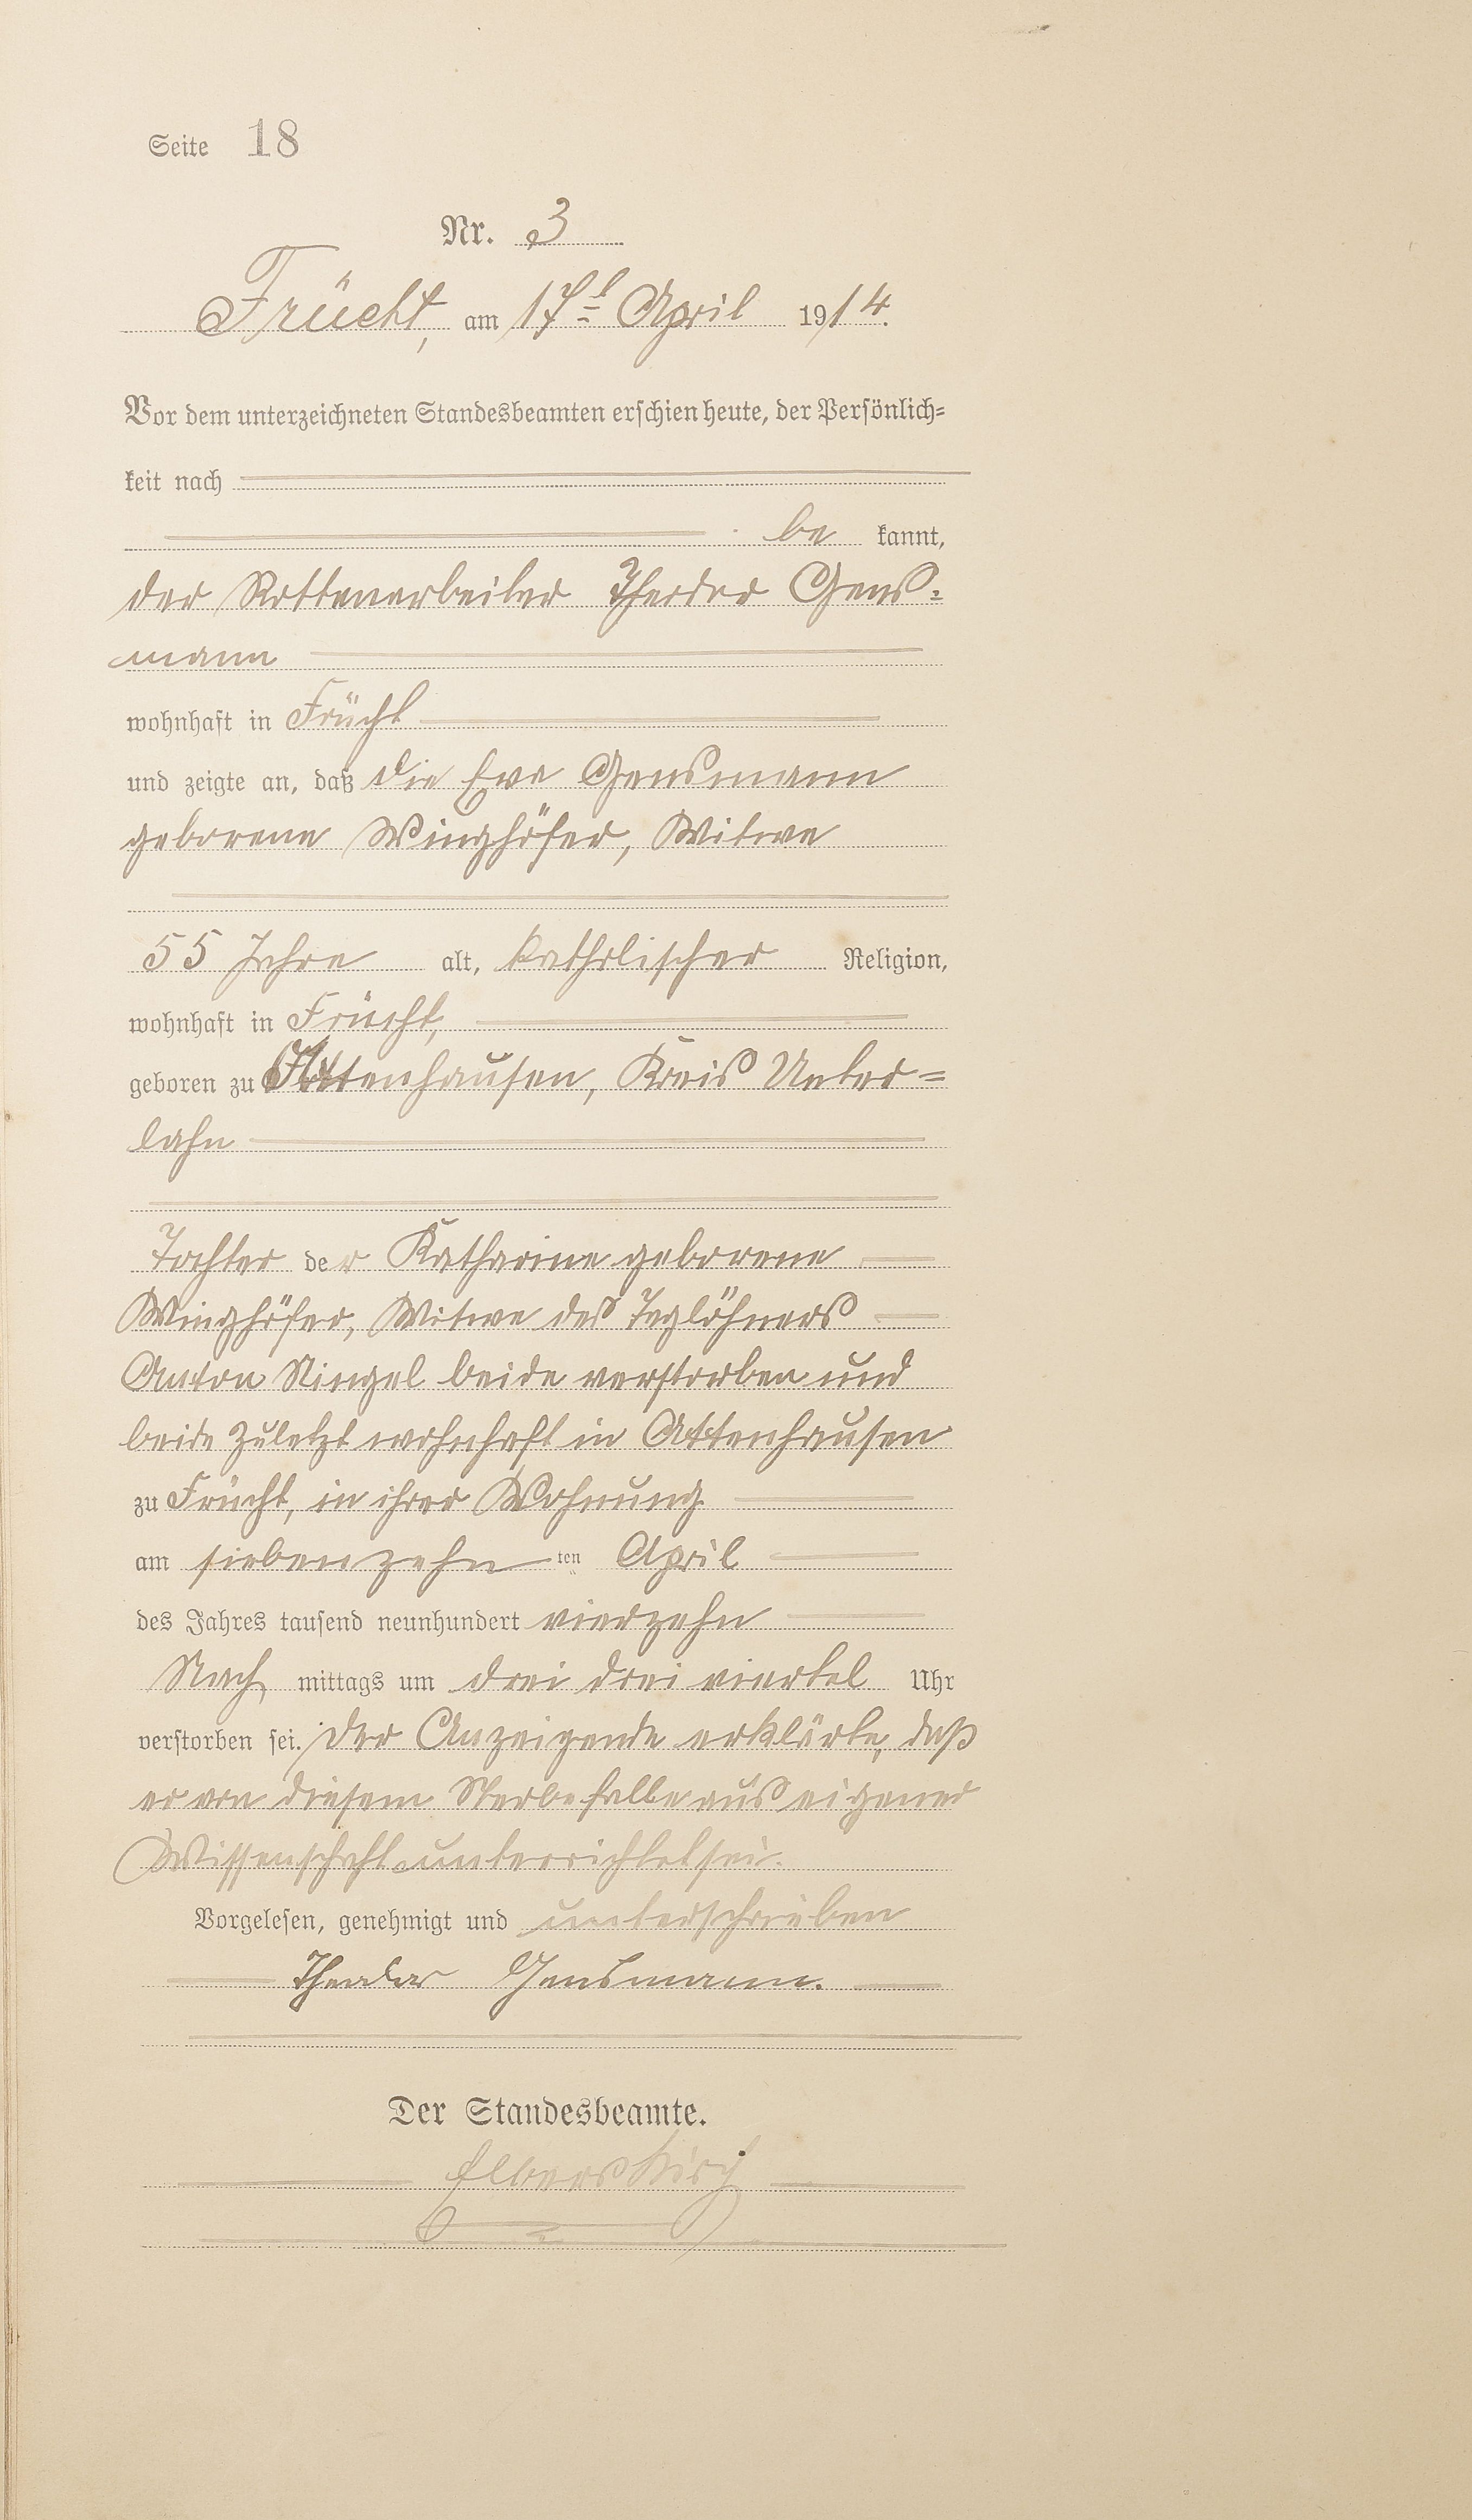 Seite 18
Nr. 3
Frücht, am 17t April 1914.
Vor dem unterzeichneten Standesbeamten erschien heute, der Persönlich-
keit nach
be kannt,
der Rottenarbeiter Theodor Gens-
mann
wohnhaft in Frücht
und zeigte an, daß die Eva Gensmann
geborene Winghöfer, Witwe
55 Jahre alt, katholischer Religion,
wohnhaft in Frücht,
geboren zu Attenhausen, Kreis Unter-
lahn
Tochter der Katharine geborene
Winghöfer, Witwe des Taglöhners
Anton Ningel beide verstorben und
beide zuletzt wohnhaft in Attenhausen
zu Frücht, in ihrer Wohnung
am siebenzehn ten April
des Jahres tausend neunhundert vierzehn
Nach mittags um drei drei viertel Uhr
verstorben sei. Der Anzeigende erklärte, daß
er von diesem Sterbefalle aus eigener
Wissenschaft unterrichtet sei.
Vorgelesen, genehmigt und unterschrieben
Theodor Gensmann.
Der Standesbeamte.